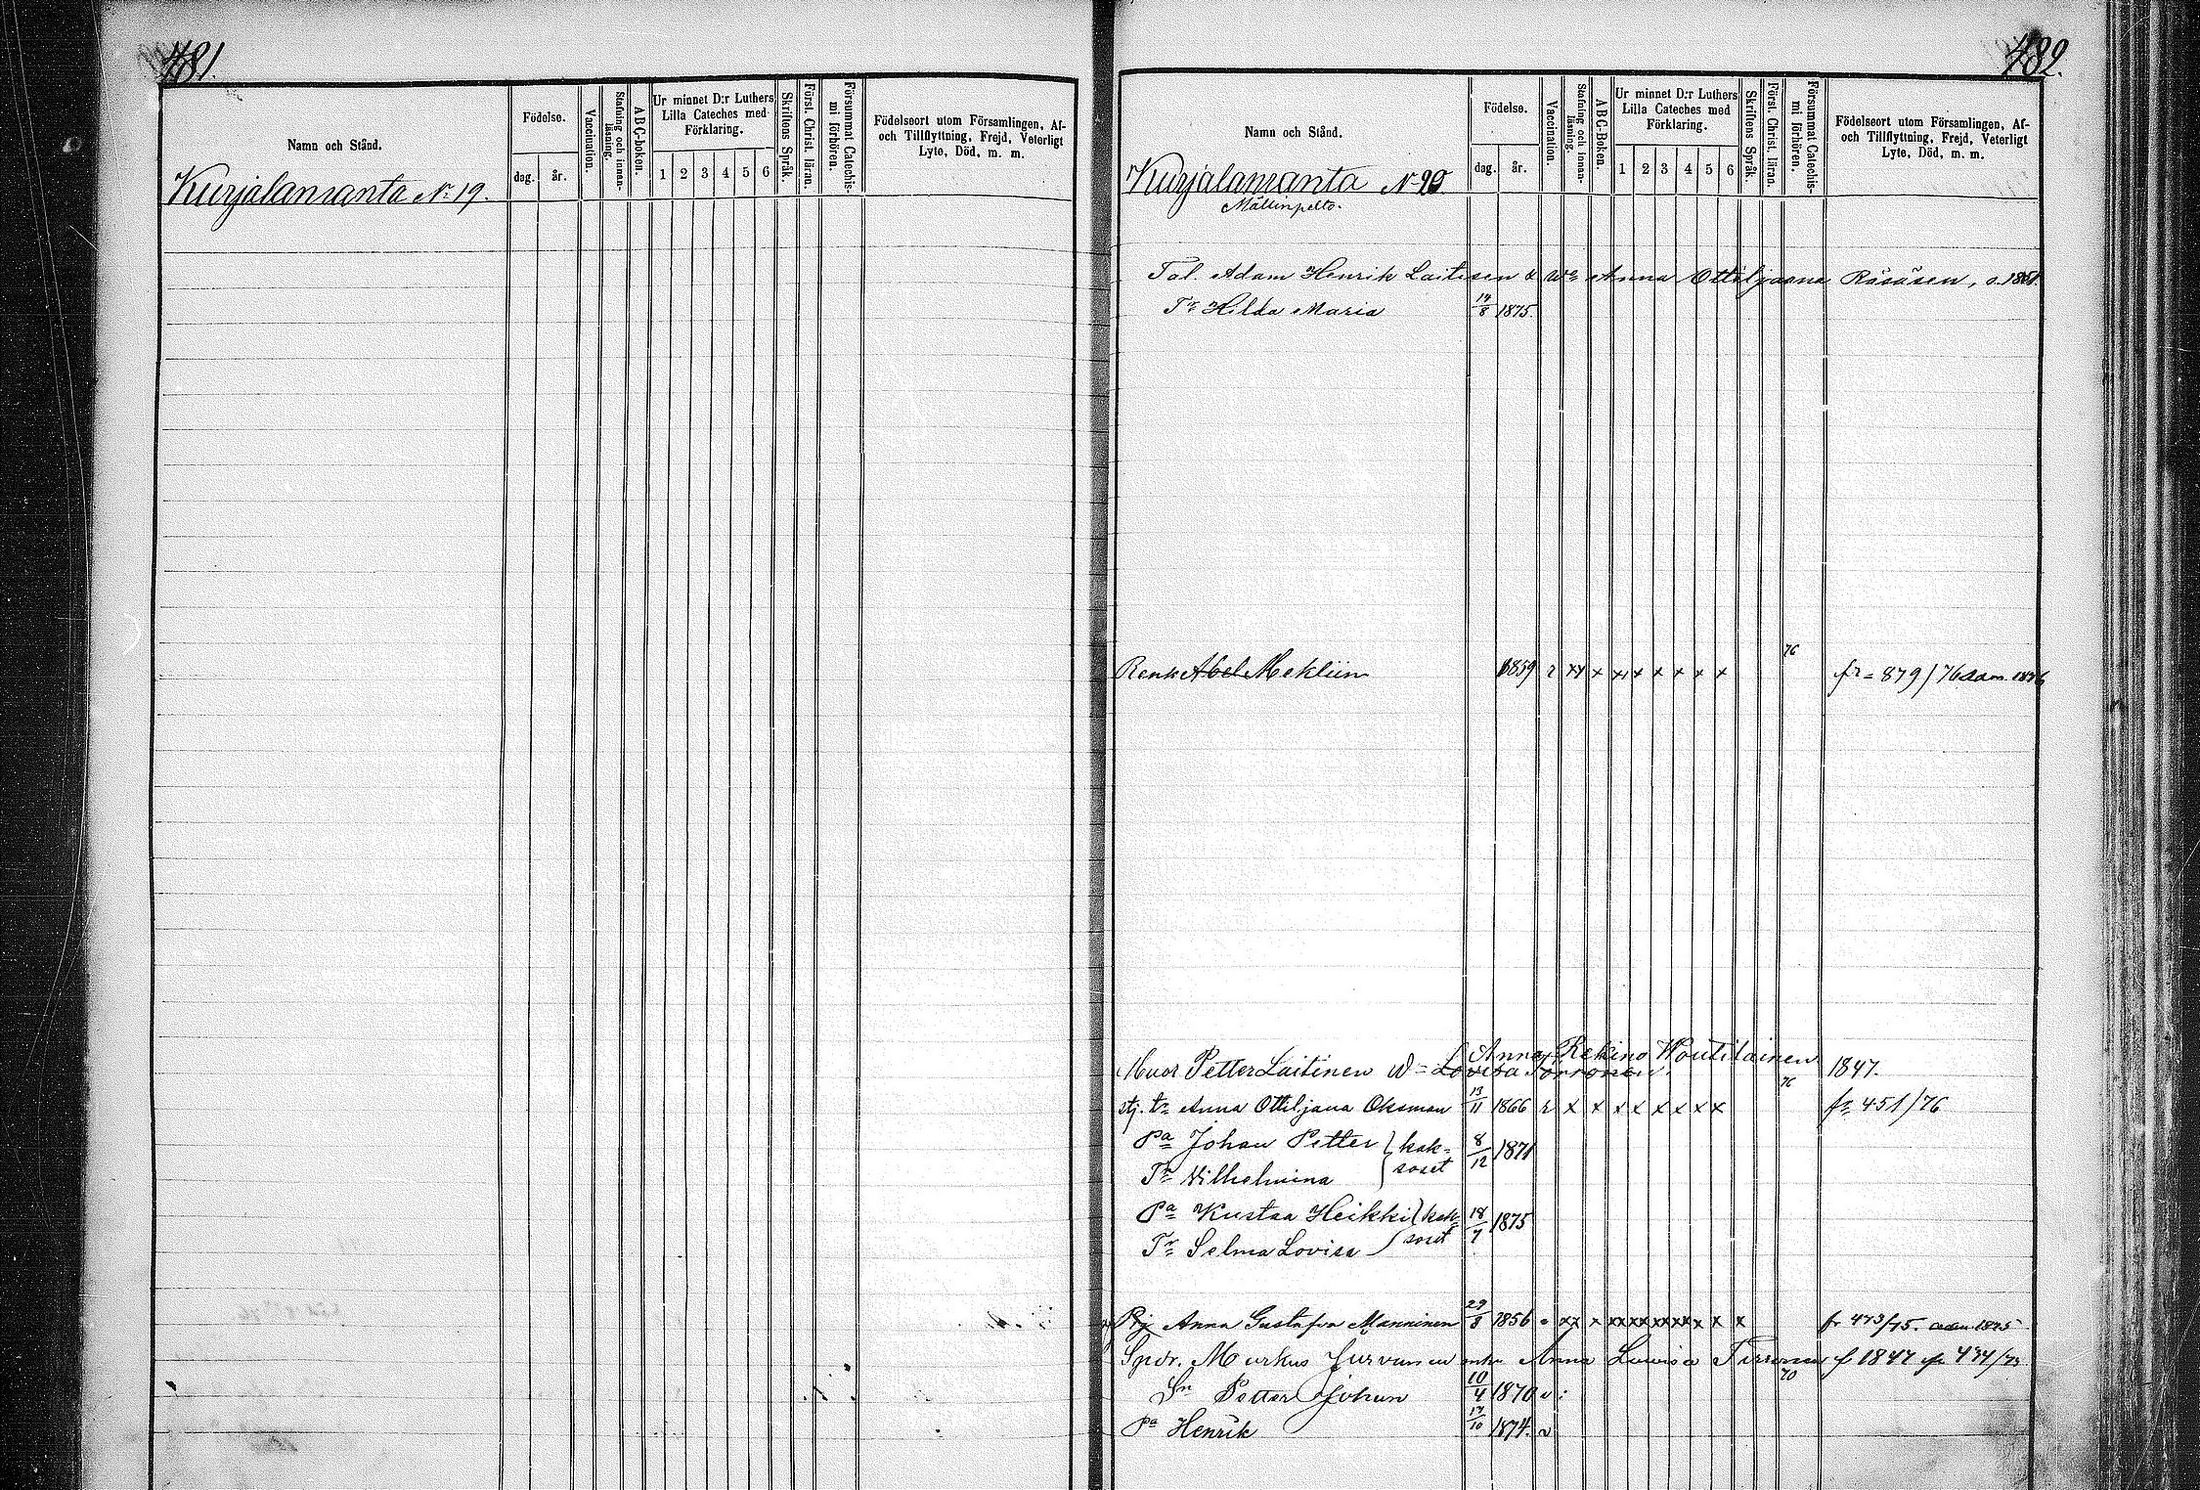 481.
Namn och Stånd.
Födelse.
dag. år.
Vaccination.
Stafning och innan-läsning.
ABC-boken.
Ur minnet D:r Luthers
Lilla Cateches med
Förklaring.
1 2 3 4 5 6
Skriftens Språk.
Först. Christ. läran.
Försummat Catechis-
mi förhören.
Födelseort utom Församlingen, Af-
och Tillflyttning, Frejd, Veterligt
Lyte, Död, m. m.
Kurjalanranta No 19.
482.
Namn och Stånd.
Födelse.
dag. år.
Vaccination.
Stafning och innan-läsning.
ABC-Boken.
Ur minnet D:r Luthers
Lilla Cateches med
Förklaring.
1 2 3 4 5 6
Skriftens Språk.
Först. Christ. läran.
Försummat Catechis-
mi förhören.
Födelseort utom Församlingen, Af-
och Tillflyttning, Frejd, Veterligt
Lyte, Död, m. m.
Kurjalanranta No 20.
Mällinpelto.
Tal. Adam Henrik Laitinen & Wo Anna Ottiljaana Räsäsen, s. 1851.
Tr Hilda Maria 14/8 1875.
76
Renk Abel Mekliin 1859 r xx x x x x x x x fr = 879/76 1876
Anna Rekina Woutilainen
Muor Petter Laitinen W= Lovisa Törrönen 1847.
76
stj. tr Anna Ottiljana Oksman 13/11 1866 r x x x x x x x x fr 451/76
Pa Johan Petter } kak- 8/12 1871
Tr Vilhelmina } soset
Pa Kustaa Heikki } kak- 18/7 1875
Tr Selma Lovisa } soset
Pij Anna Gustafva Manninen 29/8 1856 xx x xx xx xx xx x x x fr 473/75. 1875
Spdr. Markus Jurvanen Anna Lovisa Tirronen f 1847 434/73
70
Sn Petter Johan 10/4 1870 v
Pa Henrik 17/10 1874. v